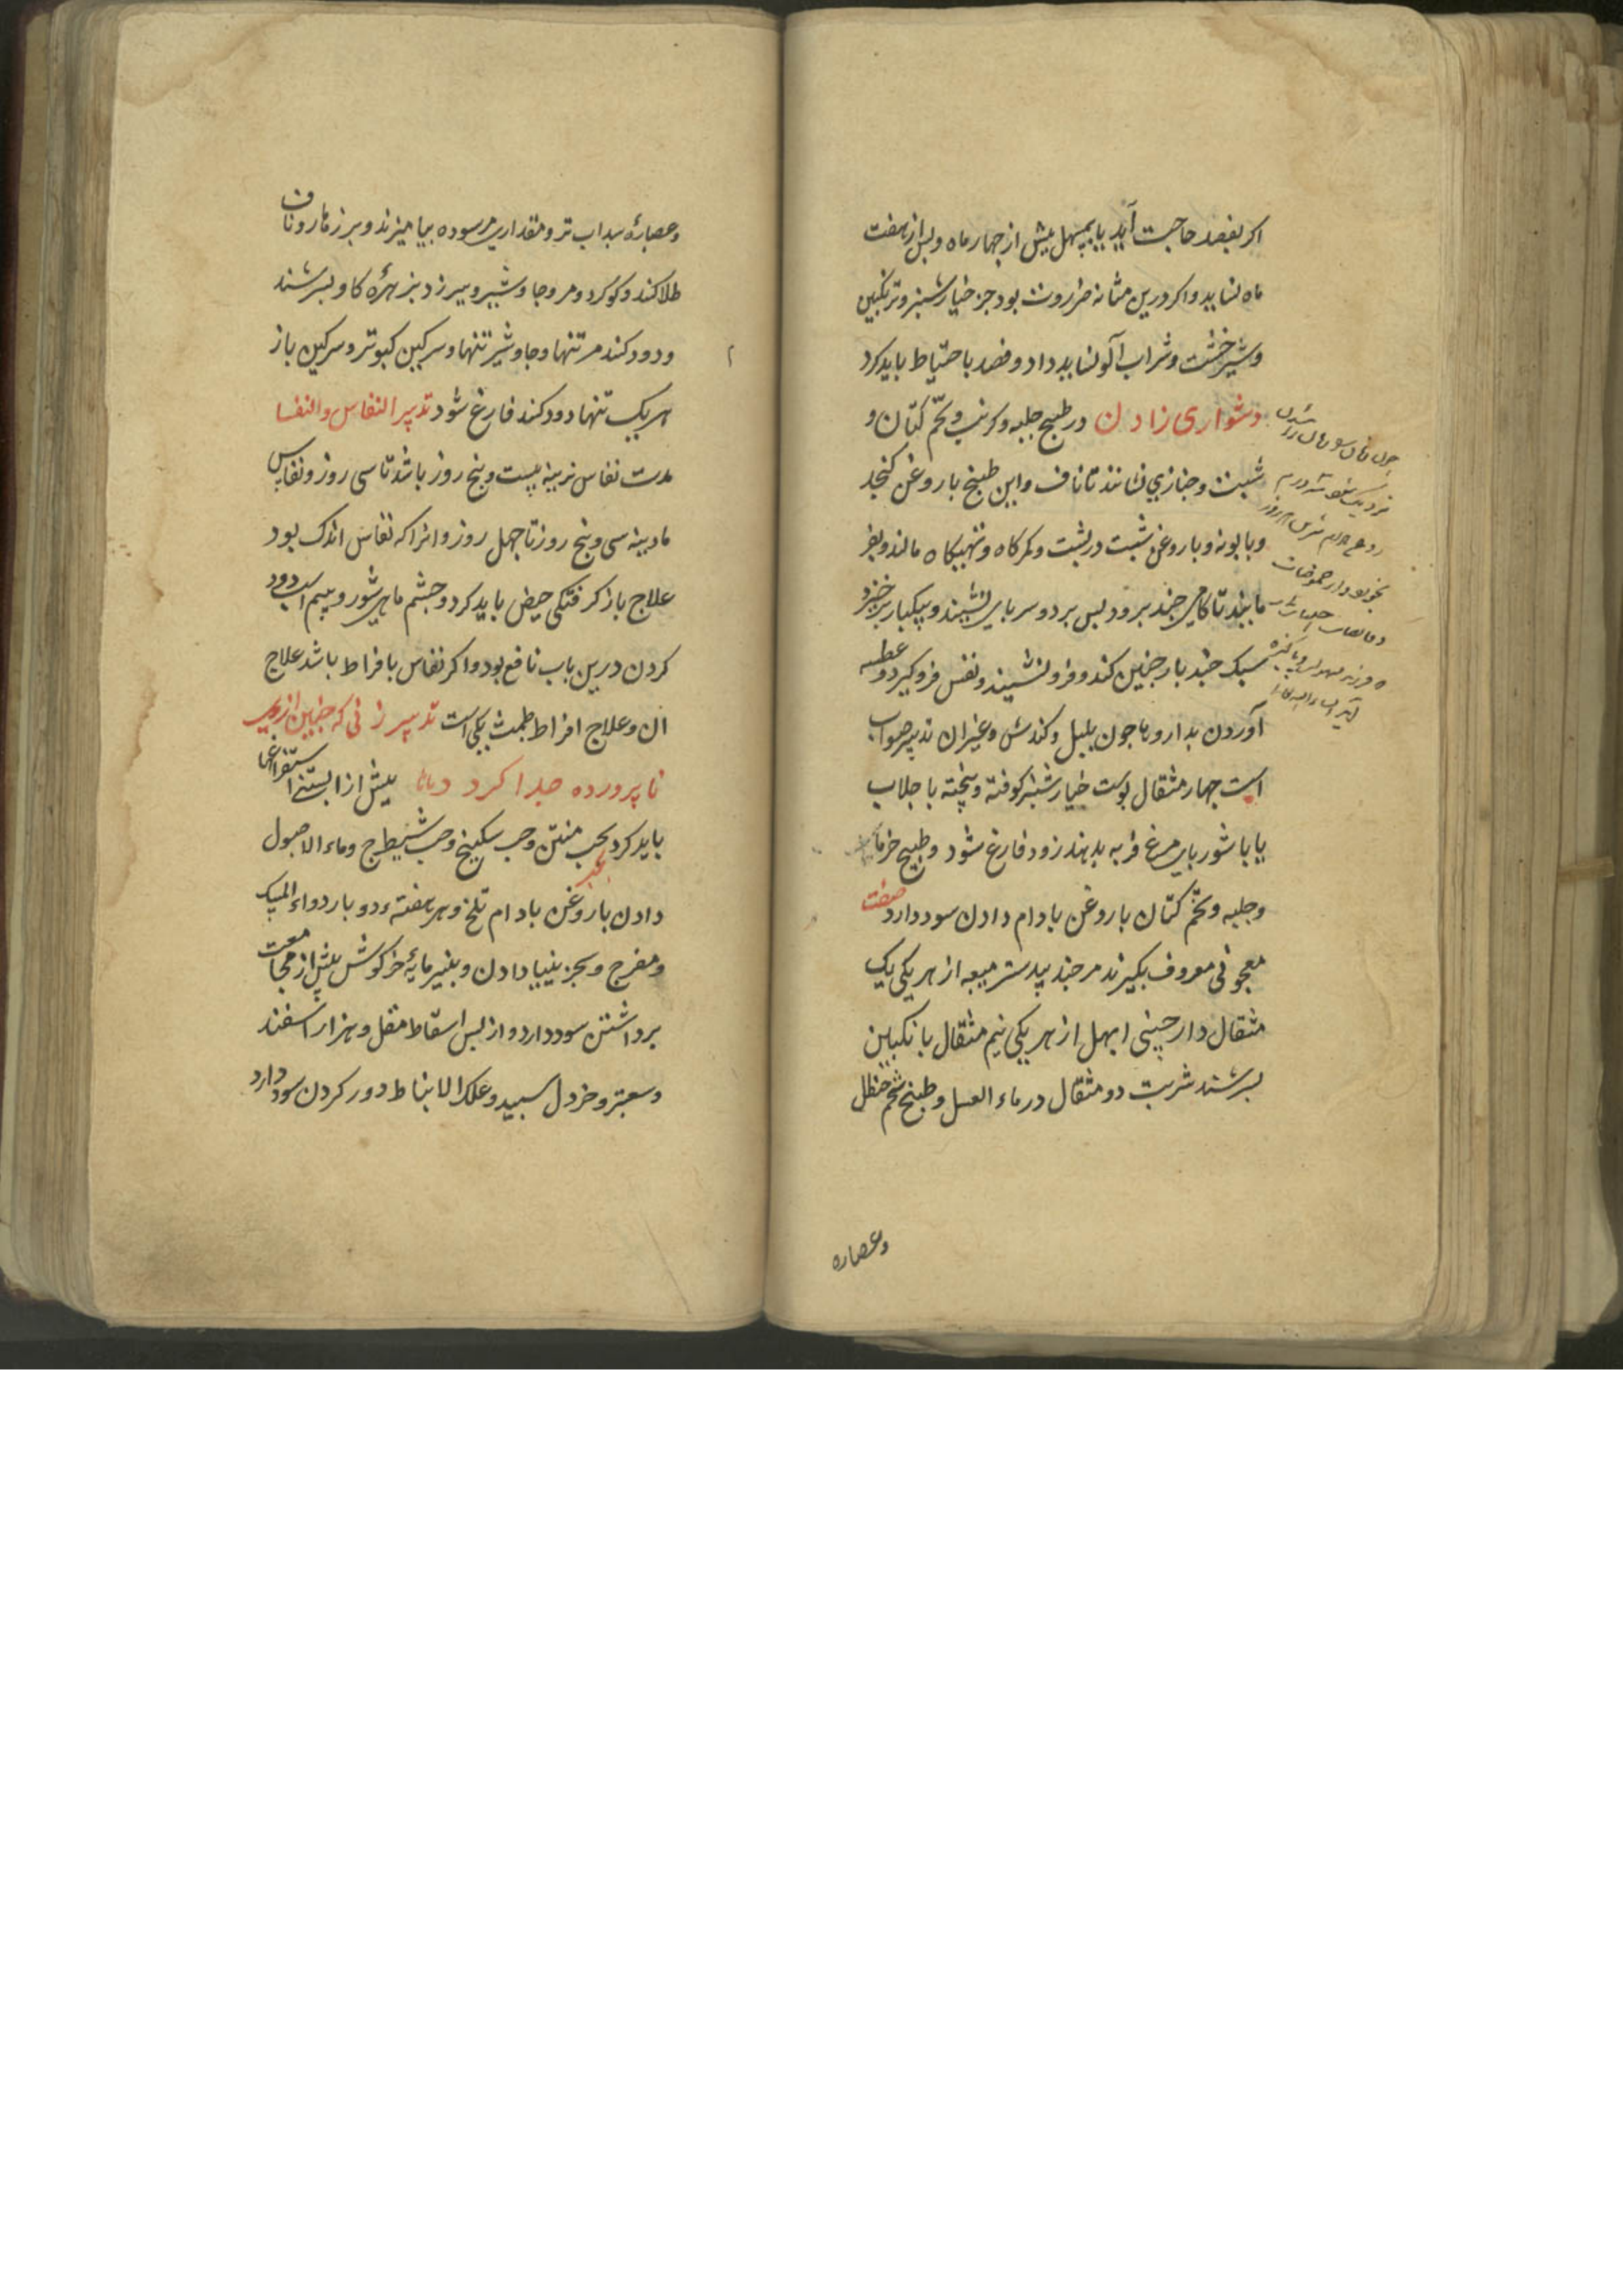 اکر بفصد حاجت آید یا بمسهل پیش از جهار ماه و بس از هفت
ماه نشاید و اکر درین مثانه ضرورت بود جز خیار شنبر و ترنکبین
و شیرخشت و شراب آلو نشاید داد و فصد باحتیاط باید کرد
دشواری زادن در طبیخ حلبه و کرنب و تخم کتان و
شبت و خبازی نشانند تا ناف و این طبیخ با روغن کنجد
و بابونه و با روغن شبت در بشت و کمرکاه و تهیکاه مالند و بفر
مایند تا کامی جند برود بس بر دو سر بای نشیند و بیکبار برخیزد
سبک جند بار جنین کند و فرو نشیند و نفس فروکیرد و عطسه
آوردن بداروها جون بلبل و کندش و غیر ان تدبیر صواب
است جهار مثقال بوست خیار شنبر کوفته و بخته با جلاب
یا با شوربای مرغ فربه بدهند زود فارغ شود و طبیخ خرما
و حلبه و تخم کتان با روغن بادام دادن سود دارد صفت
معجونی معروف بکیرند مر جند بیدستر میعه از هر یکی یک
مثقال دارچینی ابهل از هر یکی نیم مثقال بانکبین
بسرشند شربت دو مثقال در ماء العسل و طبیخ شحم حنظل
وعصاره
و عصارهٔ سداب تر و مقداری مر سوده بیامیزند و بر زهار و ناف
طلا کنند و کوکرد و مر و جاوشیر و بیرزد بزهرهٔ کاو بسرشند
و دود کنند مر تنها و جاوشیر تنها و سرکین کبوتر و سرکین باز
هر یک تنها دود کنند فارغ شود تدبیر النفاس و النفسا
مدت نفاس نرینه بیست و بنج روز باشد تا سی روز و نفاس
مادینه سی و بنج روز تا جهل روز و انرا که نفاس اندک بود
علاج بازکرفتکی حیض باید کرد و جشم ماهی شور و سم اسب دود
کردن درین باب نافع بود و اکر نفاس بافراط باشد علاج
ان و علاج افراط طمث یکی است تدبیر زنی که جنین از وی
نا پرورده جدا کردد پیش از ابستنی استفراغها
باید کرد بحب منتن و حب سکبینج و حب شیطرج و ماء الاصول
دادن با روغن بادام تلخ و هر هفته دو بار دواء المسک
و مفرح و سجزینیا دادن و بنیرمایهٔ خرکوش پیش از مجامعت
برداشتن سود دارد و از بس اسقاط مقل و هزار اسفند
و سعتر و خردل سبید و علک الانباط دور کردن سود دارد